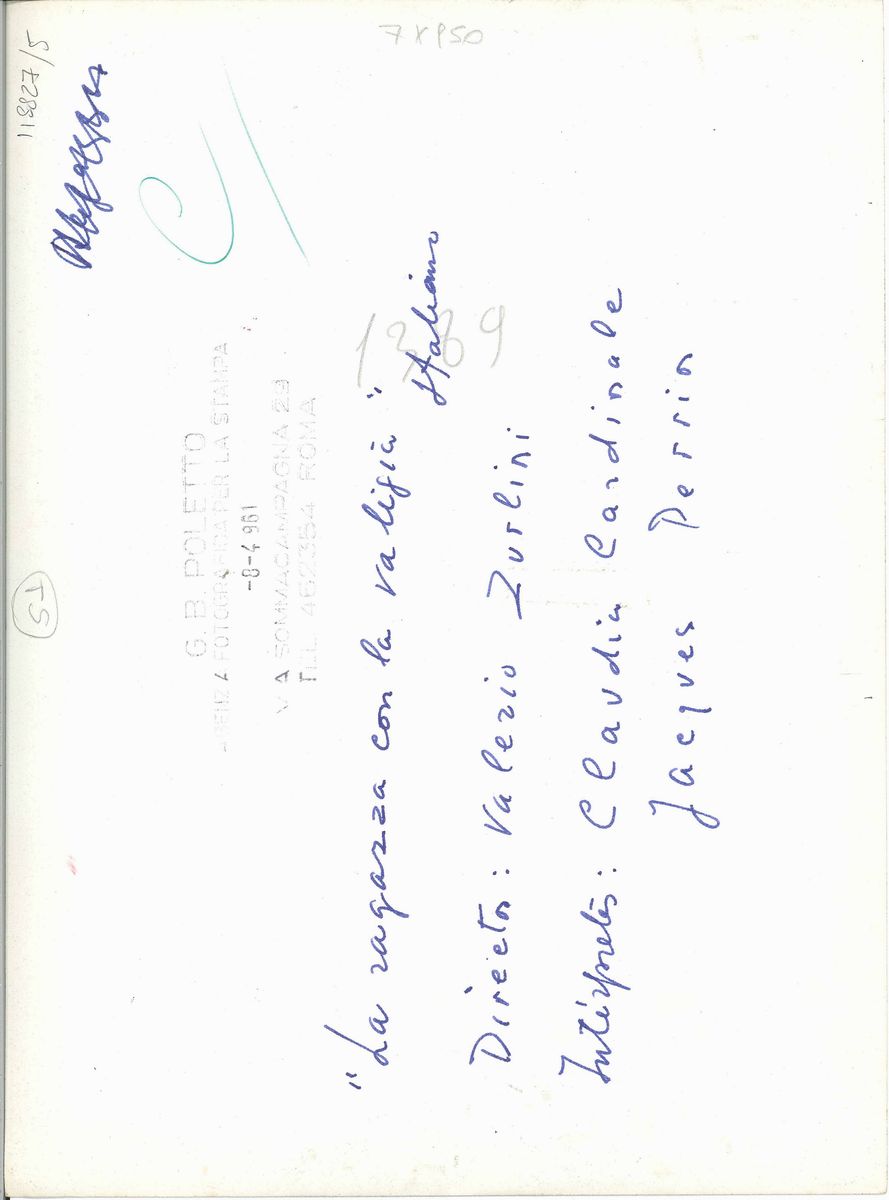 7 x 950
118827/5
G. B. POLETTO
AGENZIA FOTOGRAFICA PER LA STAMPA
-8-4 961
VIA SOMMACAMPAGNA 23
TEL. 462354 ROMA
"La ragazza con la valigia"
Italiano
Director: Valerio Zurlini
Intérpretes: Claudia Cardinale
Jacques Perrin